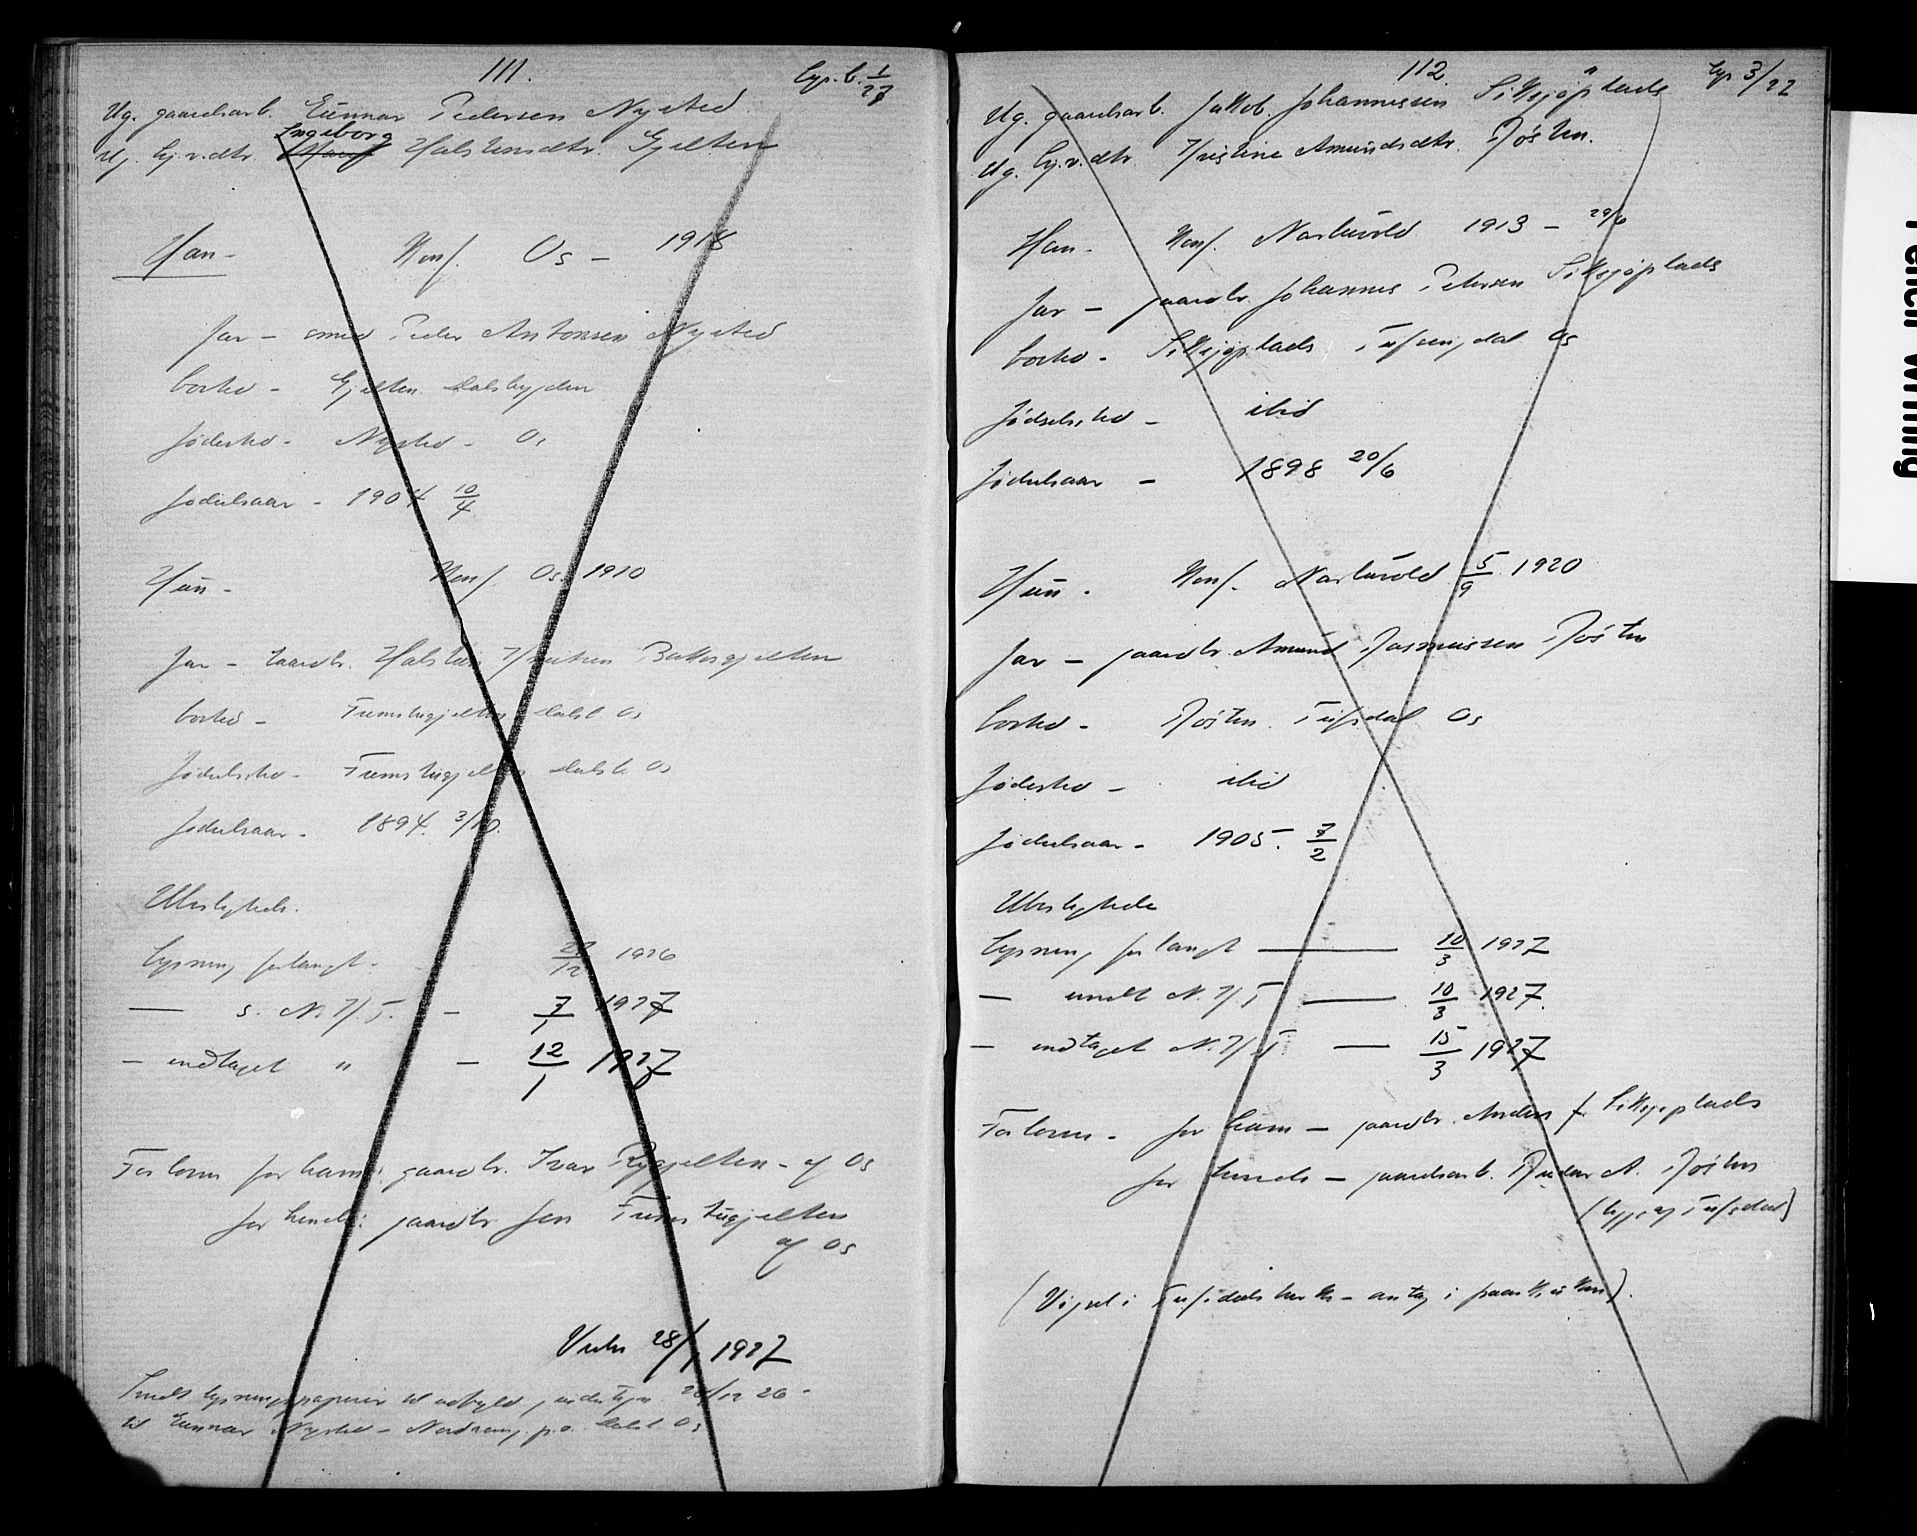 111.
Lysn. b. 1/27
Ug. gaardsarb. Gunnar Pedersen Nysted
Ingeborg
Ug. Gj.v.dtr. Halstensdtr. Gjelten
Han - Konf. Os - 1918
Far - smed Peder Antonsen Nysted
bosted - Gjelten Dalsbygden
fødested - Nysted - Os
fødselsaar - 1904 10/4
Hun - Konf. Os 1910
Far - Gaardbr. Halsten Knutsen Bakkegjelten
bosted - Fremstugjelten Dalsb. Os
fødselssted - Fremstugjelten Dalsb. Os
fødselsaar - 1894. 3/10.
Ubeslegtede.
Lysning forlangt - 27/12 1926
— s. N. K/T. - 7/1 1927
— indtaget " - 12/1 1927
Forlover for ham: gaardbr. Ivar Ryggjelten - af Os
for hende: gaardbr Jon Fremstugjelten
af Os
Viede 28/1 1927
Sendt lysningspapirer til udfyld, undertegn. 28/12 26 -
til Gunnar Nysted - Nordvang p.o. Dalsb. Os
112
Lys 3/27
Ug. gaardsarb. Jakob Johannessen Siksjøplads
Ug. Gj.v.dtr. Kristine Amundsdtr. Røsten.
Han - Konf. Narbuvold 1913 - 29/6
Far - gaardbr. Johannes Petersen Siksjøplads
bosted - Siksjøplads Tufsingdal Os
fødselssted - ibid
fødselsaar - 1898 20/6
Hun - Konf. Narbuvold 5/9 1920
Far - gaardbr. Amund Rasmussen Røsten
bosted - Røsten. Tufsdal Os
fødested - ibid
fødselsaar - 1905. 7/2
Ubeslegtede
Lysning forlangt — 10/3 1927
— sendt N. K/T — 10/3 1927.
— indtaget N. K/T — 15/3 1927
Forlover - for ham - gaardbr. Anders J. Siksjøplads
for hende - gaardsarb. Peder A. Røsten
(begge af Tufsdal)
(Vigsel i Tufsdals kirke - antag i paasketiden).